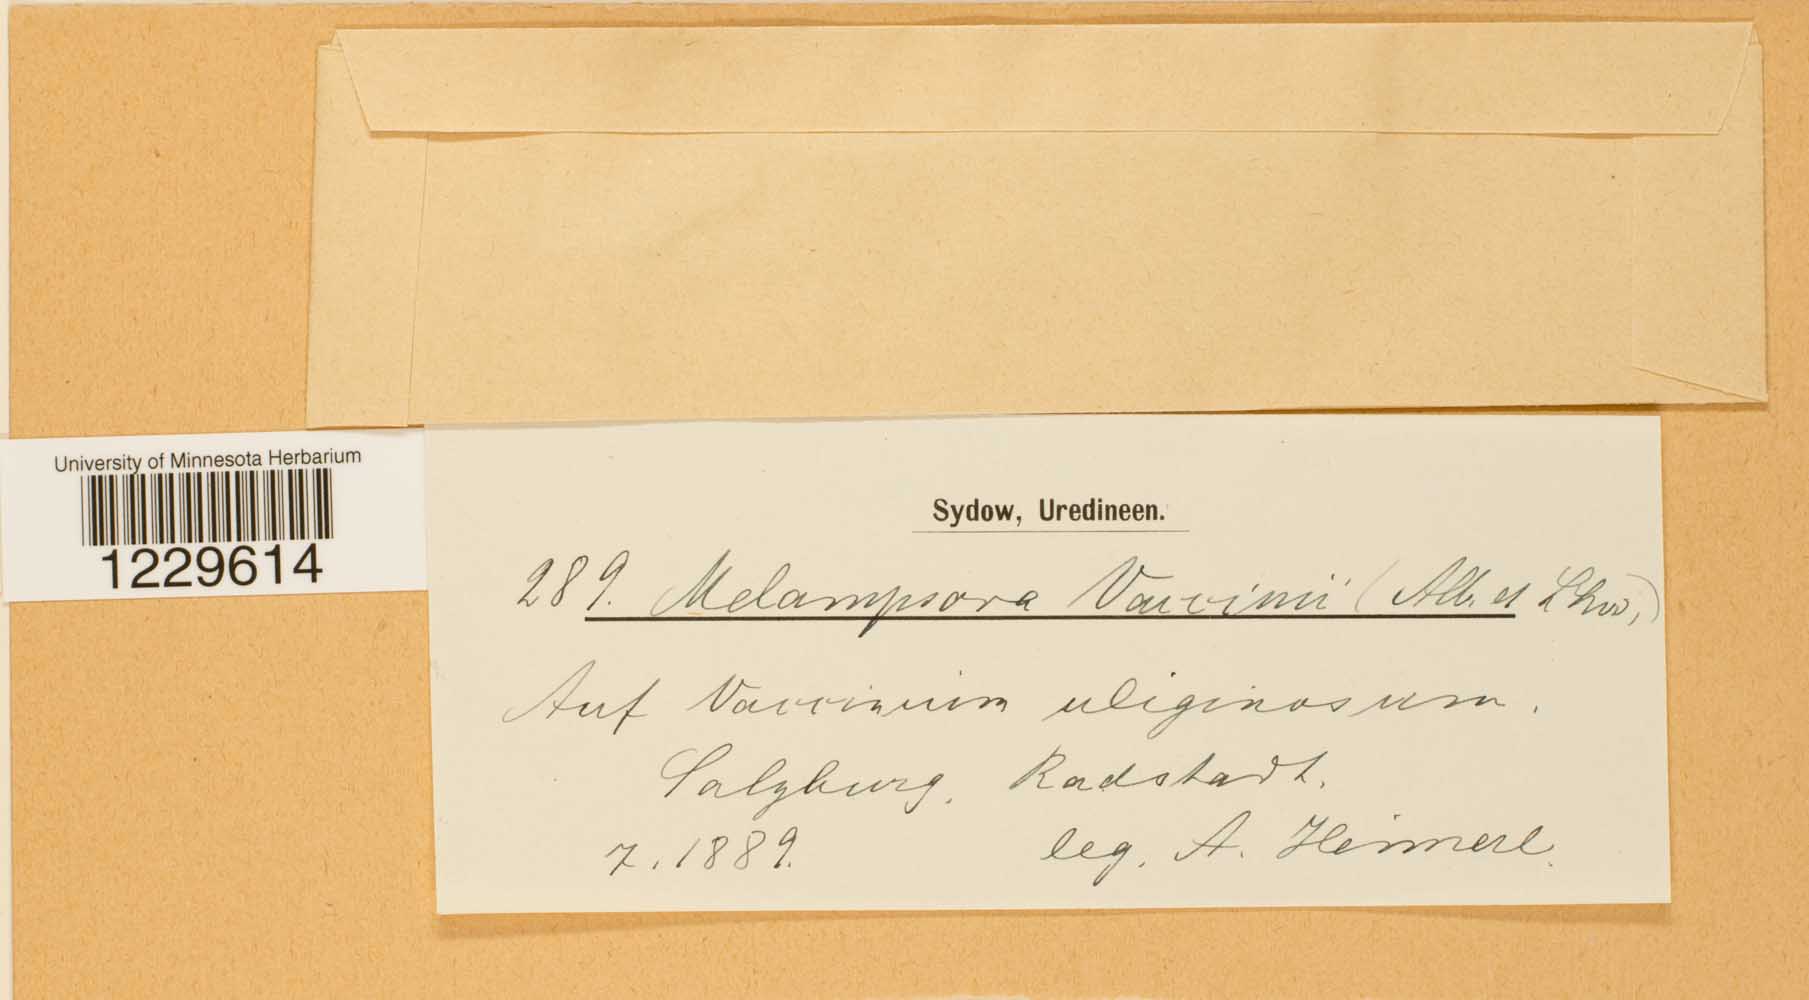 University of Minnesota Herbarium
1229614
Sydow, Uredineen.
289. Melampsora Vaccinii (Alb. et Schw.)
Auf Vaccinium uliginosum.
Salzburg, Radstadt.
7. 1889. leg. A. Heimerl.